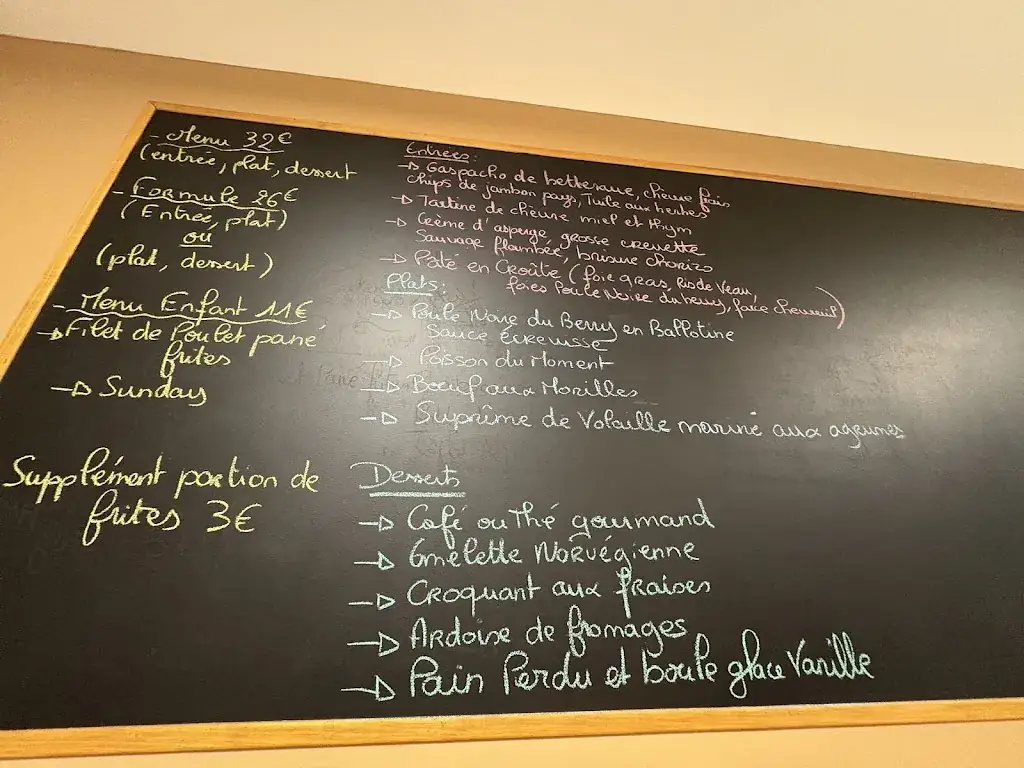 - Menu 32€
(entrée, plat, dessert
- Formule 26€
(Entrée, plat)
ou
(plat, dessert)
- Menu Enfant 11€
→ Filet de Poulet pané
frites
→ Sunday
Supplément portion de
frites 3€
Entrées:
→ Gaspacho de betterave, chèvre frais
chips de jambon pays, Tuile aux herbes
→ Tartine de chèvre miel et thym
→ Crème d'asperge, grosse crevette
Sauvage flambée, brisure chorizo
→ Pâté en Croûte (foie gras, Ris de Veau,
foies Poule Noire du berry, farce chevreuil)
Plats:
→ Poule Noire du Berry en Ballotine
Sauce écrevisse
→ Poisson du Moment
→ Boeuf aux Morilles
→ Suprême de Volaille mariné aux agrumes
Desserts
→ Café ou Thé gourmand
→ Omelette Norvégienne
→ Croquant aux fraises
→ Ardoise de fromages
→ Pain Perdu et boule glace Vanille